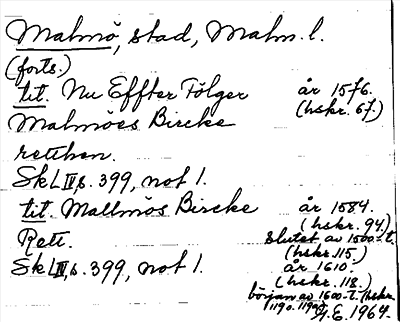 Malmö, stad, Malm. l.
(forts.)
tit. Nu Effter Fölger år 1576.
Malmöes Bircke (hskr. 67.)
retthen.
SkL IV, s. 399, not 1.
tit. Mallmös Bircke år 1584.
(hskr. 94.)
Rett. slutet av 1500-t.
(hskr. 115.)
SkL IV, s. 399, not 1. år 1610.
(hskr. 118.)
början av 1600-t. (hskr.
G.E. 1964.